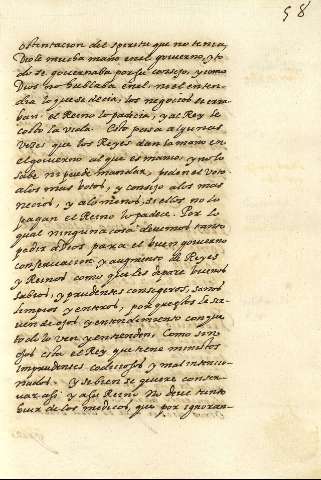 58
obstentacion del spiritu que no tenia,
Diole mucha mano en el govierno, y to
do se governaba por su consejo, y como
Dios no hablaba en el, ni el enten
dia lo que se decia, los negocios se erra
ban, el Reino lo padecia, y al Rey le
costò la vida. Esto pasa algunas
veçes que los Reyes dan la mano en
el govierno al que es manco, y no lo
sabe ni puede mandar, piden el voto
a los mas botos, y consejo a los mas
necios, y a lo menos, si ellos no lo
pagan el Reino lo padece. Por lo
qual ninguna cosa devemos tanto
pedir a Dios para el buen govierno
conservacion y augmento de Reyes
y Reinos como que les depare buenos
sabios, y prudentes consejeros, sanos
limpios y enteros, porque ellos le sir
ven de ojos, y entendimiento con que
todo lo ven, y entienden. Como sin
ojos està el Rey que tiene ministros
imprudentes codiciosos y mal intencio
nados. Y si bien se quiere conser
var assi y a su Reino no deve tanto
huir de los medicos, que por ignoran-